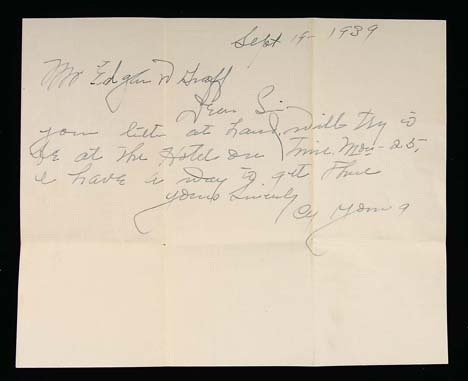 Sept 19 - 1939
Mr Edgar W Graff
Dear Sir
your letter at hand, will try to
be at the Hotel on time. Mon - 25,
I have a way to get there
yours Sincerely
Cy Young